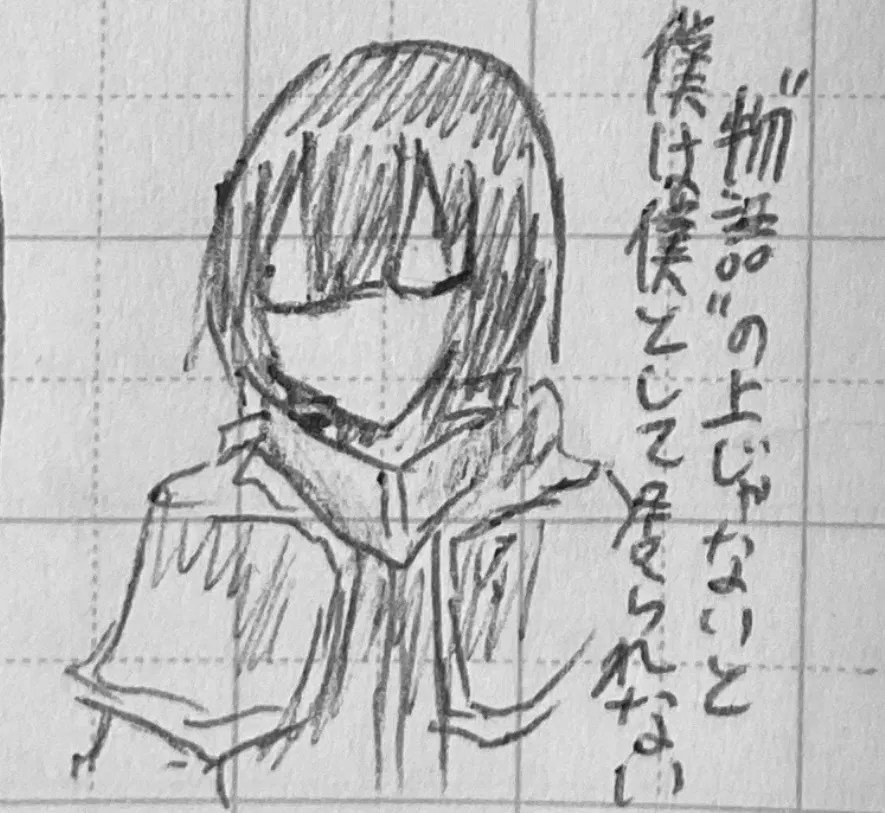 "物語"の上じゃないと
僕は僕として居られない